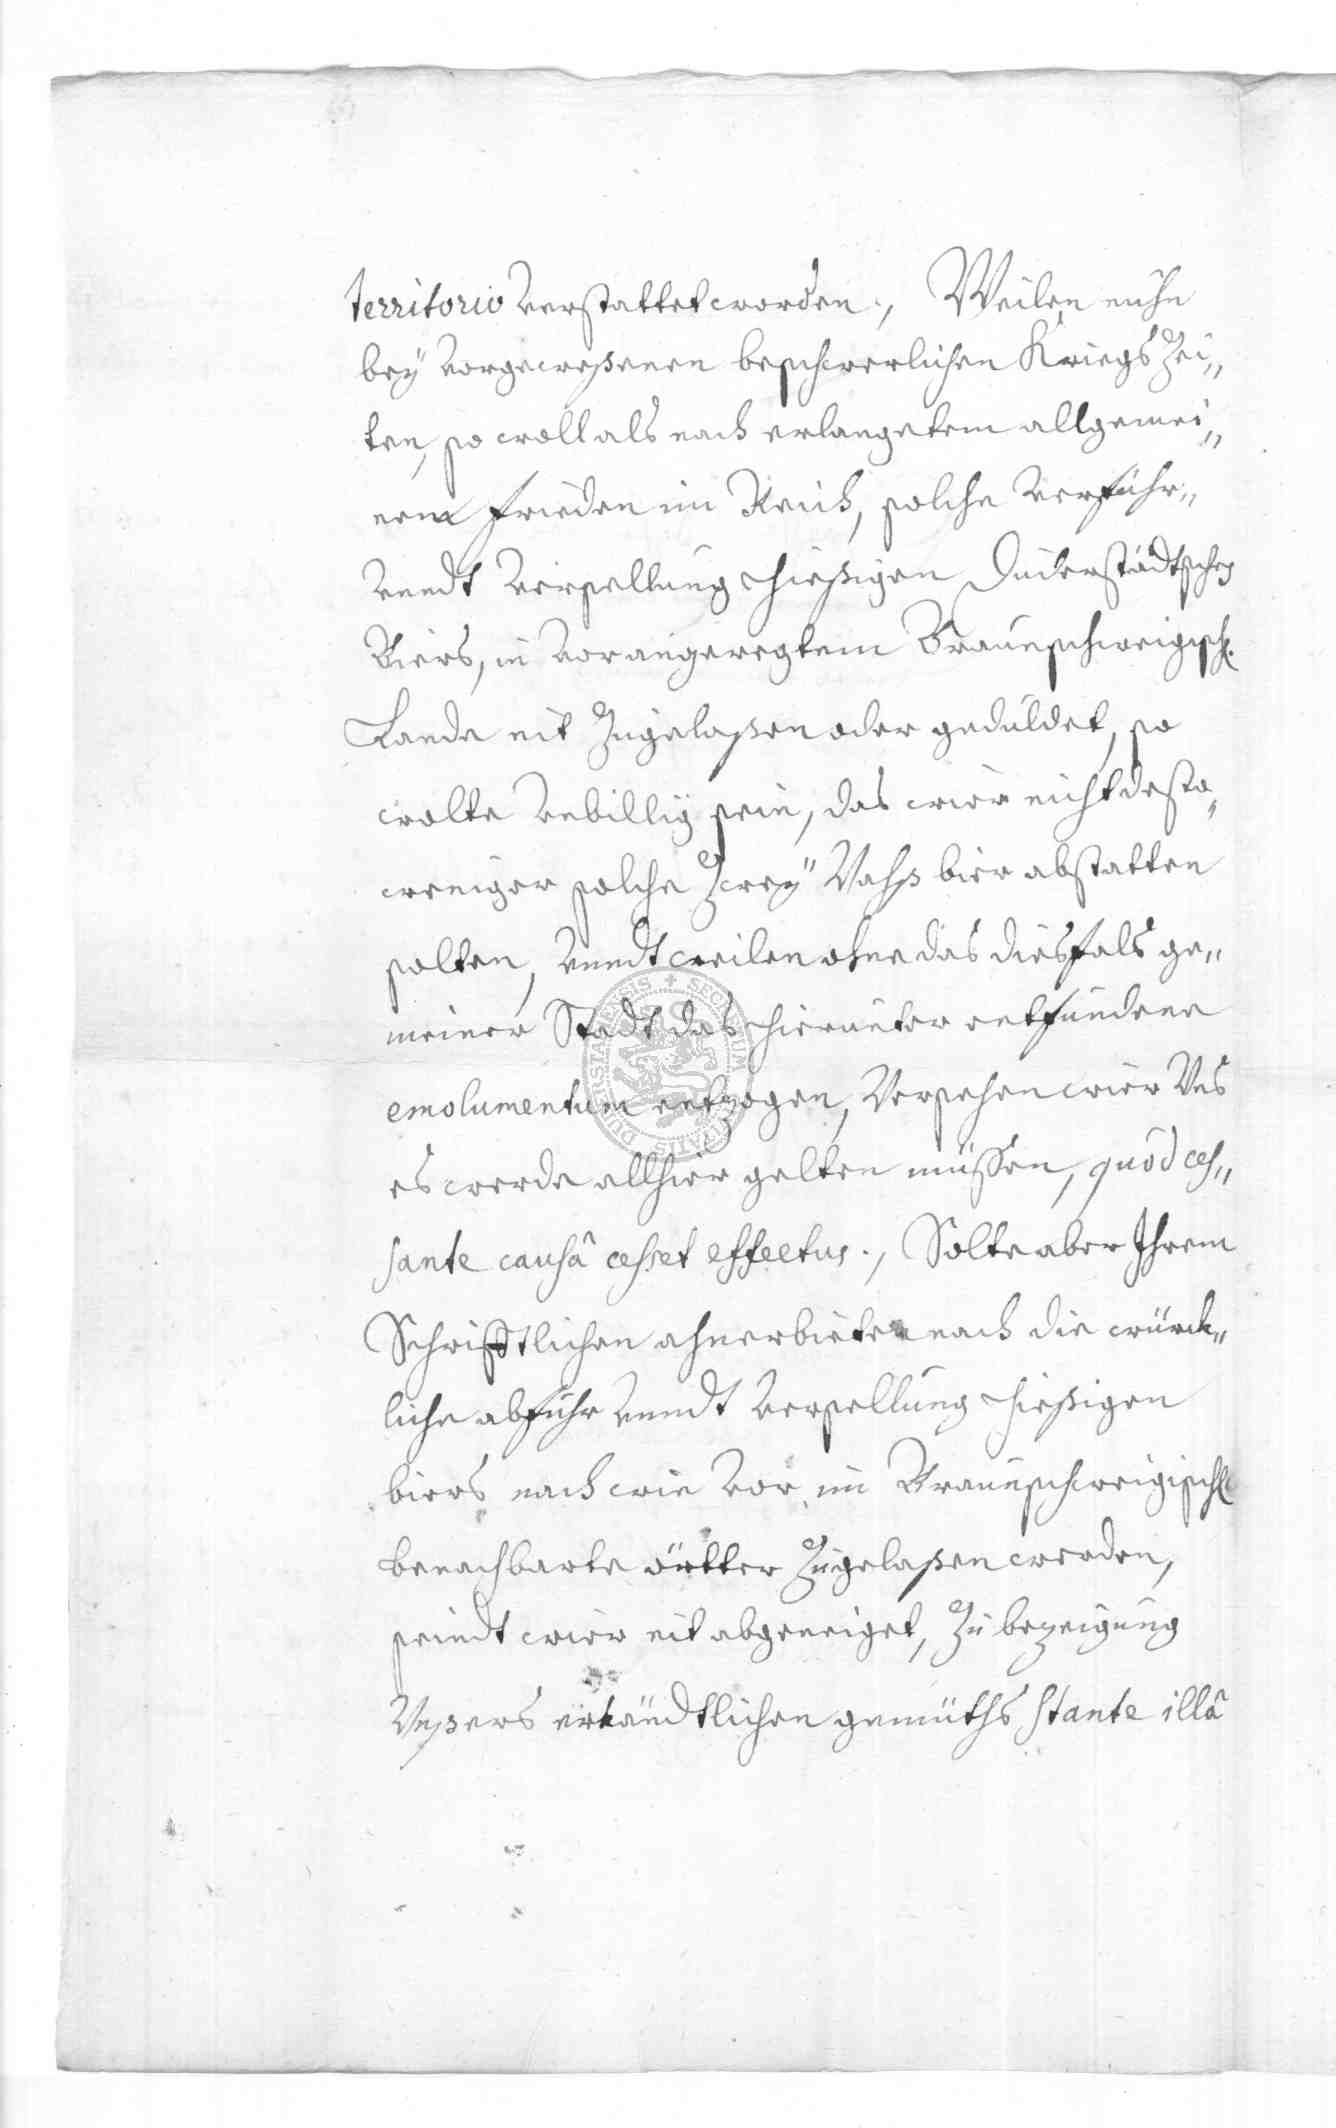 territorio verstattet worden., Weilen nuhn
bey vorgeweßenen beschwerlichen Kriegs Zei„
ten, so woll als nach erlangetem allgemei„
nem frieden im Reich, solche verführ„
vnndt verpellung hießigen Duderstädtschen
Biers, in vorangeregtem Braunschweigisch.
Lande nit Zugelaßen oder geduldet, so
wolte vnbillig sein, das wier nicht desto„
weniger solche Zwey Vahß bier abstatten
solten, vnndt weilen ohne das diesfals ge„
meiner Stadt das hierunter entfundene
emolumentum entzogen, Versehen wier Vns
es werde allhier gelten müssen, quòd ces„
sante causâ cesset effectus., Solte aber Ihrem
Schrifftlichen ahnerbieten nach die würck„
liche abfuhr vnndt versellung hießigen
biers nach wie vor im Braunschweigisch
benachbarte örtter Zugelaßen werden,
seindt wier nit abgeneiget, Zu bezeigung
Vnßers erkändtlichen gemüths stante illâ
SECRETUM CIVITATIS DUDERSTATENSIS